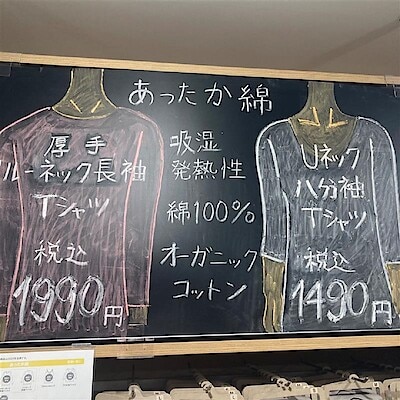 あったか綿
厚手
ルーネック長袖
Tシャツ
税込
1990円
吸湿
発熱性
綿100%
オーガニック
コットン
Uネック
八分袖
Tシャツ
税込
1490円